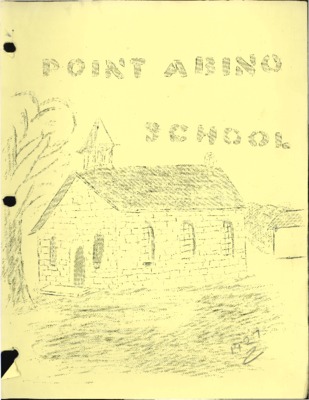 POINT ABINO
SCHOOL